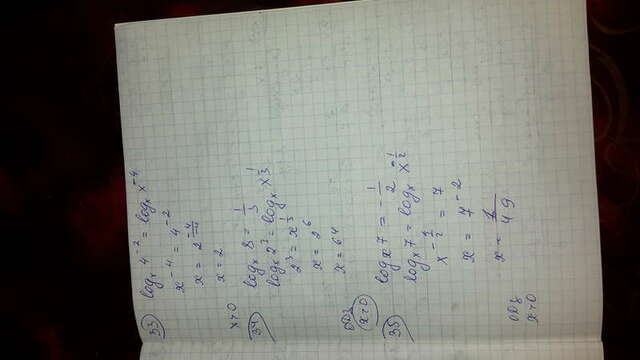 33 logₓ 4⁻² = logₓ x⁻⁴
x⁻⁴ = 4⁻²
x = 2^(-4/-4)
x = 2
x>0
34 logₓ 8 = 1/3
logₓ 2³ = logₓ x^(1/3)
2³ = x^(1/3)
x = 2⁶
x = 64
ОДЗ
x>0
35 logₓ 7 = -1/2
logₓ 7 = logₓ x^(-1/2)
x^(-1/2) = 7
x = 7⁻²
x = 1/49
ОДЗ
x>0